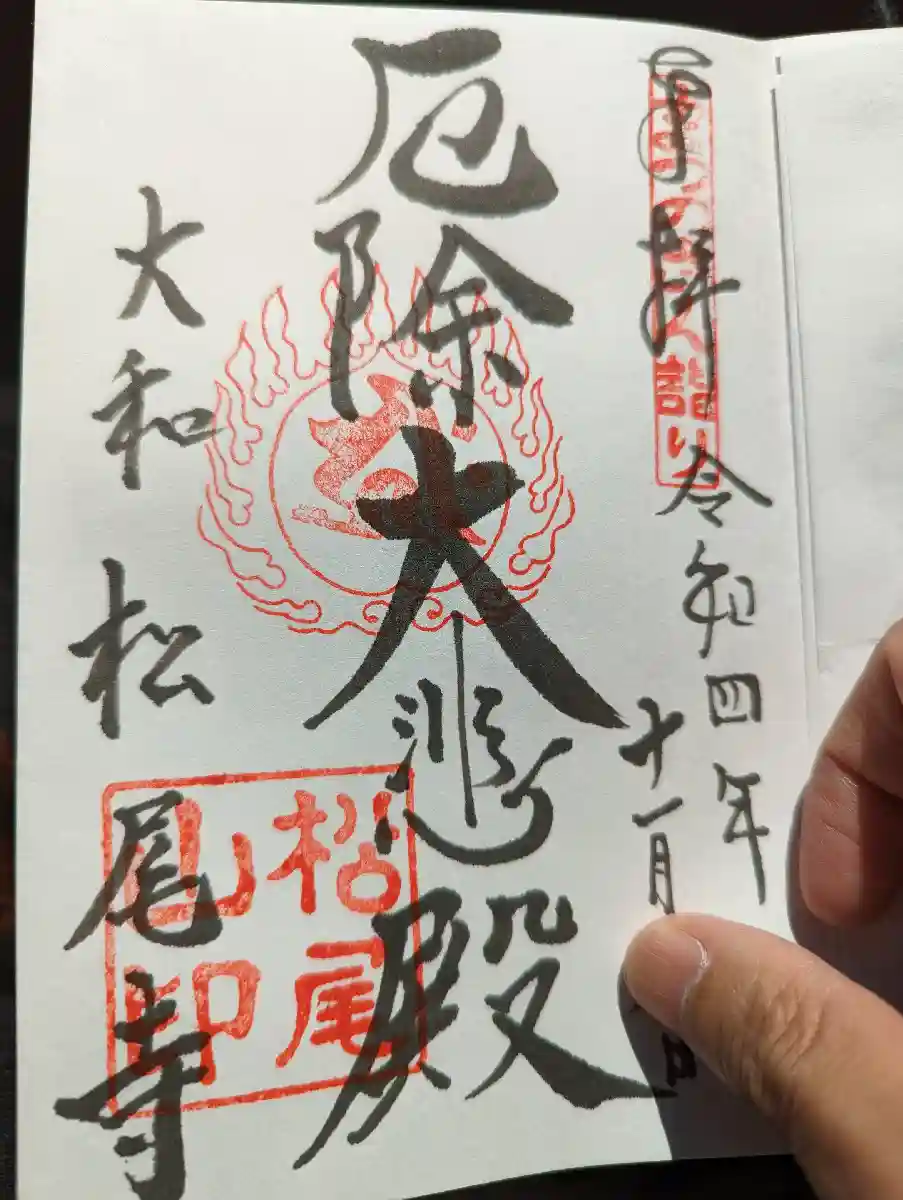 奉拝
詣り
令和四年
十一月
日
厄除大悲殿
松尾
山印
大和松尾寺